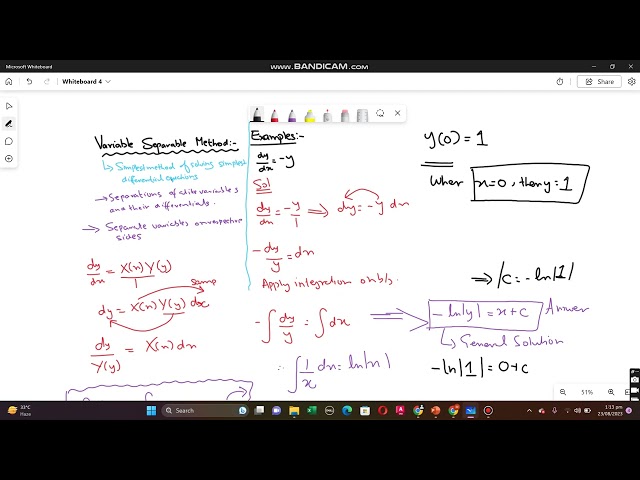 Microsoft Whiteboard
WWW.BANDICAM.COM
Whiteboard 4
Share
Variable Separable Method:-
Simplest method of solving simplest
differential equations
→ Separations of alike variables
and their differentials.
→ Separate variables on respective
sides
dy/dx = X(x)Y(y)/1
Same
dy = X(x)Y(y) dx
dy/Y(y) = X(x) dx
Examples:-
dy/dx = -y
Sol
dy/dx = -y/1 ⇒ dy = -y dx
-dy/y = dx
Apply integration on b/s.
-∫dy/y = ∫dx
∴ ∫1/x dx = ln|x|
y(0) = 1
When x=0, then y=1
⇒ C = -ln|1|
-ln|y| = x+c Answer
General Solution
-ln|1| = 0+c
51%
33°C
Haze
Search
1:13 pm
23/08/2023